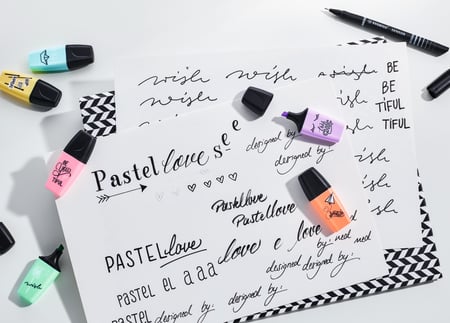 wish wish wish
wish
wish
wish
wish
BE
BE
TiFUL
TiFUL
Pastel love
see
designed by:
designed by:
Pastellove
Pastellove
PASTELlove love e love
by: ned ned
pastel el a a a
designed by: designed by:
designed by:
PASTEL
designed by:
designed by:
BE
YOU
TIFUL
wish